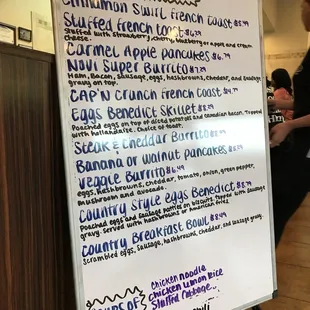 Cinnamon Swirl French Toast
Stuffed French Toast
Stuffed with strawberry, cherry, blueberry or apple and cream
cheese.
Carmel Apple Pancakes
Novi Super Burrito
Ham, Bacon, Sausage, eggs, hashbrowns, cheddar, and sausage
gravy on top.
CAP'N Crunch French Toast
Eggs Benedict Skillet
Poached eggs on top of diced potatoes and canadian bacon. Topped
with hollandaise. Choice of toast.
Steak & Cheddar Burrito
Banana or Walnut Pancakes
Veggie Burrito
eggs, hashbrowns, cheddar, tomato, onion, green pepper,
mushroom and avocado.
Country Style Eggs Benedict
Poached eggs and sausage patties on biscuits, topped with sausage
gravy. Served with hashbrowns or American fries
Country Breakfast Bowl
Scrambled eggs, sausage, hashbrowns, cheddar, and sausage gravy.
Soups of
Chicken Noodle
Chicken Lemon Rice
Stuffed Cabbage